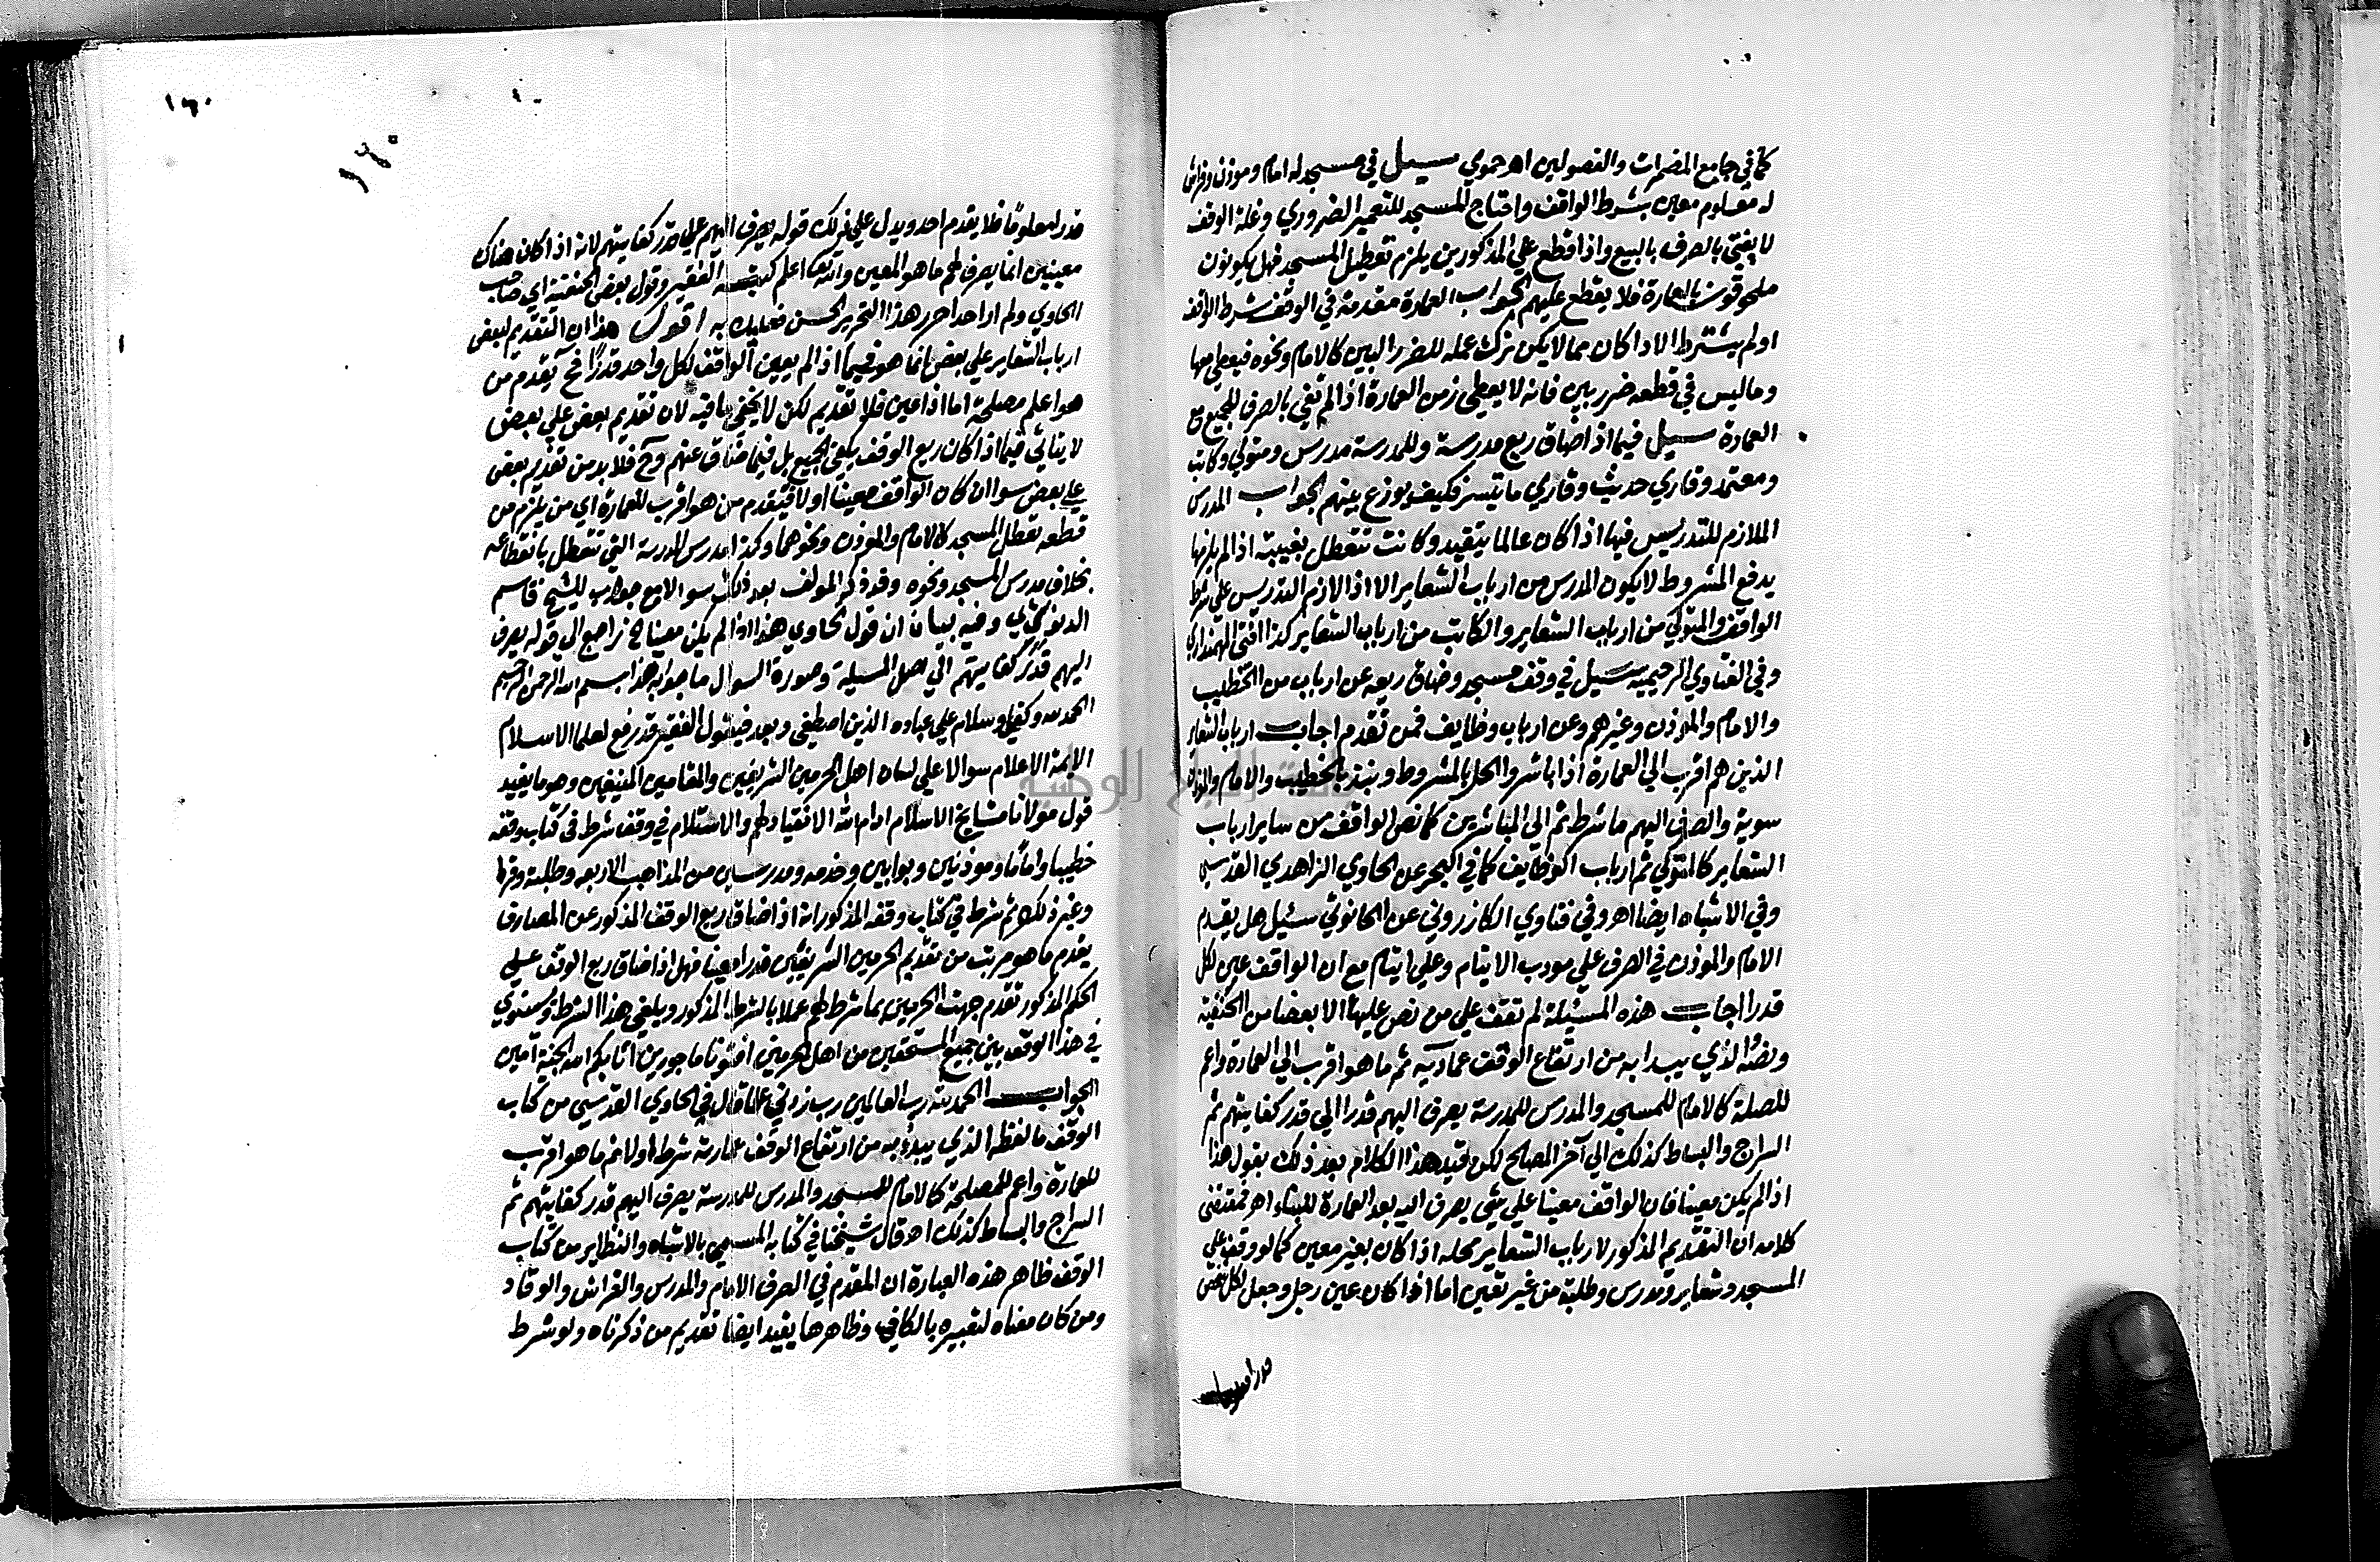 كما في جامع المضمرات والفصولين اهـ حموي سيل في مسجد له امام وموذن وفراش
له معلوم معين بشرط الواقف واحتاج المسجد للتعمير الضروري وغلة الوقف
لا يفي بالصرف بالبيع واذا قطع علي المذكورين يلزم تعطيل المسجد فهل يكونون
ملحوقون بالعمارة فلا يقطع عليهم الجواب العمارة مقدمة في الوقف شرط الواقف
اولم يشترط الا اذا كان مما لا يمكن ترك عمله للضرر البين كالامام ونحوه فيعطي منها
وما ليس في قطعه ضرر بين فانه لا يعطي زمن العمارة اذا لم تفي بالصرف للجميع مع
العمارة سيل فيما اذا ضاق ريع مدرسة وللمدرسة مدرس ومتولي وكاتب
ومعتمد وقاري حديث وقاري ما تيسر فكيف يوزع بينهم الجواب المدرس
الملازم للتدريس فيها اذا كان عالما بتقييد وكانت تتعطل بغيبته اذا لم يلزمها
يدفع المشروط لا يكون المدرس من ارباب الشعاير الا اذا لازم التدريس علي شرط
الواقف والمتولي من ارباب الشعاير والكاتب من ارباب الشعاير كذا افتي المهمنداري
وفي الفتاوي الرحيميه سيل في وقف مسجد وضاق ريعه عن ارباب من الخطيب
والامام والموذن وغيرهم وعن ارباب وظايف فمن تقدم اجاب ارباب الشعاير
الذين هم اقرب الي العمارة اذا باشروا الحل بالمشروط ويبدا بالخطيب والامام والموذن
سوية والصرف اليهم ما شرط ثم الي المباشرين كما نص الواقف من ساير ارباب
الشعاير كالمتولي ثم ارباب الوظايف كما في البحر عن الحاوي الزاهدي القدسي
وفي الاشباه ايضا اهـ وفي فتاوي الكازروني عن الحانوتي سئيل هل يقدم
الامام والموذن في الصرف علي مودب الايتام وعلي ايتام مع ان الواقف عين لكل
قدرا اجاب هذه المسئلة لم نقف علي من نص عليها الا بعضا من الحنفية
ونصه الذي يبدا به من ارتفاع الوقف عمارته ثم ما هو اقرب الي العمارة واعم
للمصلحة كالامام للمسجد والمدرس للمدرسة يصرف اليهم قدرا الي قدر كفايتهم ثم
السراج والبساط كذلك الي آخر المصالح لكن قيد هذا الكلام بعد ذلك بقوله هذا
اذا لم يكن معينا فان الواقف معينا علي شي يصرف اليه بعد العمارة للبناء اهـ فمقتضي
كلامه ان التقديم المذكور لارباب الشعاير محله اذا كان بغير معين كما لو وقف علي
المسجد وشعايره ومدرس وطلبة من غير تعين اما اذا كان عين رجل وجعل لكل شخص
١٦٠
قدرا معلوما فلا يقدم احد ويدل علي ذلك قوله يصرف اليهم علي قدر كفايتهم لانه اذا كان هناك
معينين انما يصرف لهم ما هو المعين والله اعلم كتبه الفقير وقول بعض الحنفية اي صاحب
الحاوي ولم ار احدا حرر هذا التحرير الحسن فعليك به اقول هذا ان التقديم لبعض
ارباب الشعاير علي بعض انما هو فيما اذا لم يعين الواقف لكل واحد قدرا فح يقدم من
هو اعم مصلحة اما اذا عين فلا تقديم لكن لا يخفي ما فيه لان تقديم بعض علي بعض
لا يتاتي فيما اذا كان ريع الوقف يكفي الجميع بل فيما ضاق عنهم وح فلا بد من تقديم بعض
علي بعض سوا ان كان الواقف معينا او لا فيقدم من هو اقرب للعمارة اي من يلزم من
قطعه تعطل المسجد كالامام والموذن ونحوهما وكذا مدرس المدرسة التي تتعطل بانقطاعه
بخلاف مدرس المسجد ونحوه وقد ذكر المولف بعد ذلك سوالا مع جوابه للشيخ قاسم
الدنوشري وفيه بيان ان قول الحاوي هذا اذا لم يكن معينا ح راجع الي قوله يصرف
اليهم قدر كفايتهم الي اصل المسيلة وصورة السوال ما جوابه هذا بسم الله الرحمن الرحيم
الحمد لله وكفي وسلام علي عباده الذين اصطفي وبعد فيقول الفقير قد رفع لعلما الاسلام
الايمة الاعلام سوالا علي لسان اهل الحرمين الشريفين والمقامين المنيفين وهو ما يفيد
قول مولانا مشايخ الاسلام ادام الله الانقياد لهم والاستلام في وقف شرط في كتاب وقفه
خطيبا واماما وموذنين وبوابين وخدمه ومدرسين من المذاهب الاربعه وطلبة وقرا
وغير ذلك ثم شرط في كتاب وقفه المذكور انه اذا ضاق ريع الوقف المذكور عن المصارف
يقدم ما هو مرتب من تقديم الحرمين الشريفين قدرا معينا فهل اذا ضاق ريع الوقف علي
الحكم المذكور تقدم جهت الحرمين بما شرط لهم عملا بالشرط المذكور ويلغي هذا الشرط ويستوي
في هذا الوقف بين جميع المستحقين من اهل الحرمين افتونا ماجورين اثابكم الله الجنة آمين
الجواب الحمد لله رب العالمين رب زدني علما قال في الحاوي القدسي من كتاب
الوقف ما لفظه الذي يبدؤ به من ارتفاع الوقف عمارته شرط اولا ثم ما هو اقرب
للعمارة واعم للمصلحة كالامام للمسجد والمدرس للمدرسة يصرف اليهم قدر كفايتهم ثم
السراج والبساط كذلك اهـ قال شيخنا في كتابه المسمي بالاشباه والنظاير من كتاب
الوقف ظاهر هذه العبارة ان المقدم في الصرف الامام والمدرس والفراش والوقاد
ومن كان معناه لتعبيره بالكاف وظاهرها يفيد ايضا تقديم من ذكرناه ولو شرط